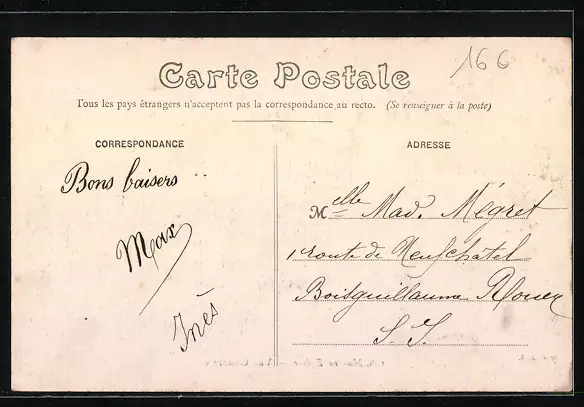 166
Carte Postale
Tous les pays étrangers n'acceptent pas la correspondance au recto. (Se renseigner à la poste)
CORRESPONDANCE
Bons baisers
Max
Inès
ADRESSE
Melle Mad. Mégret
1 route de Neufchâtel
Boisguillaume Rouen
S. I.